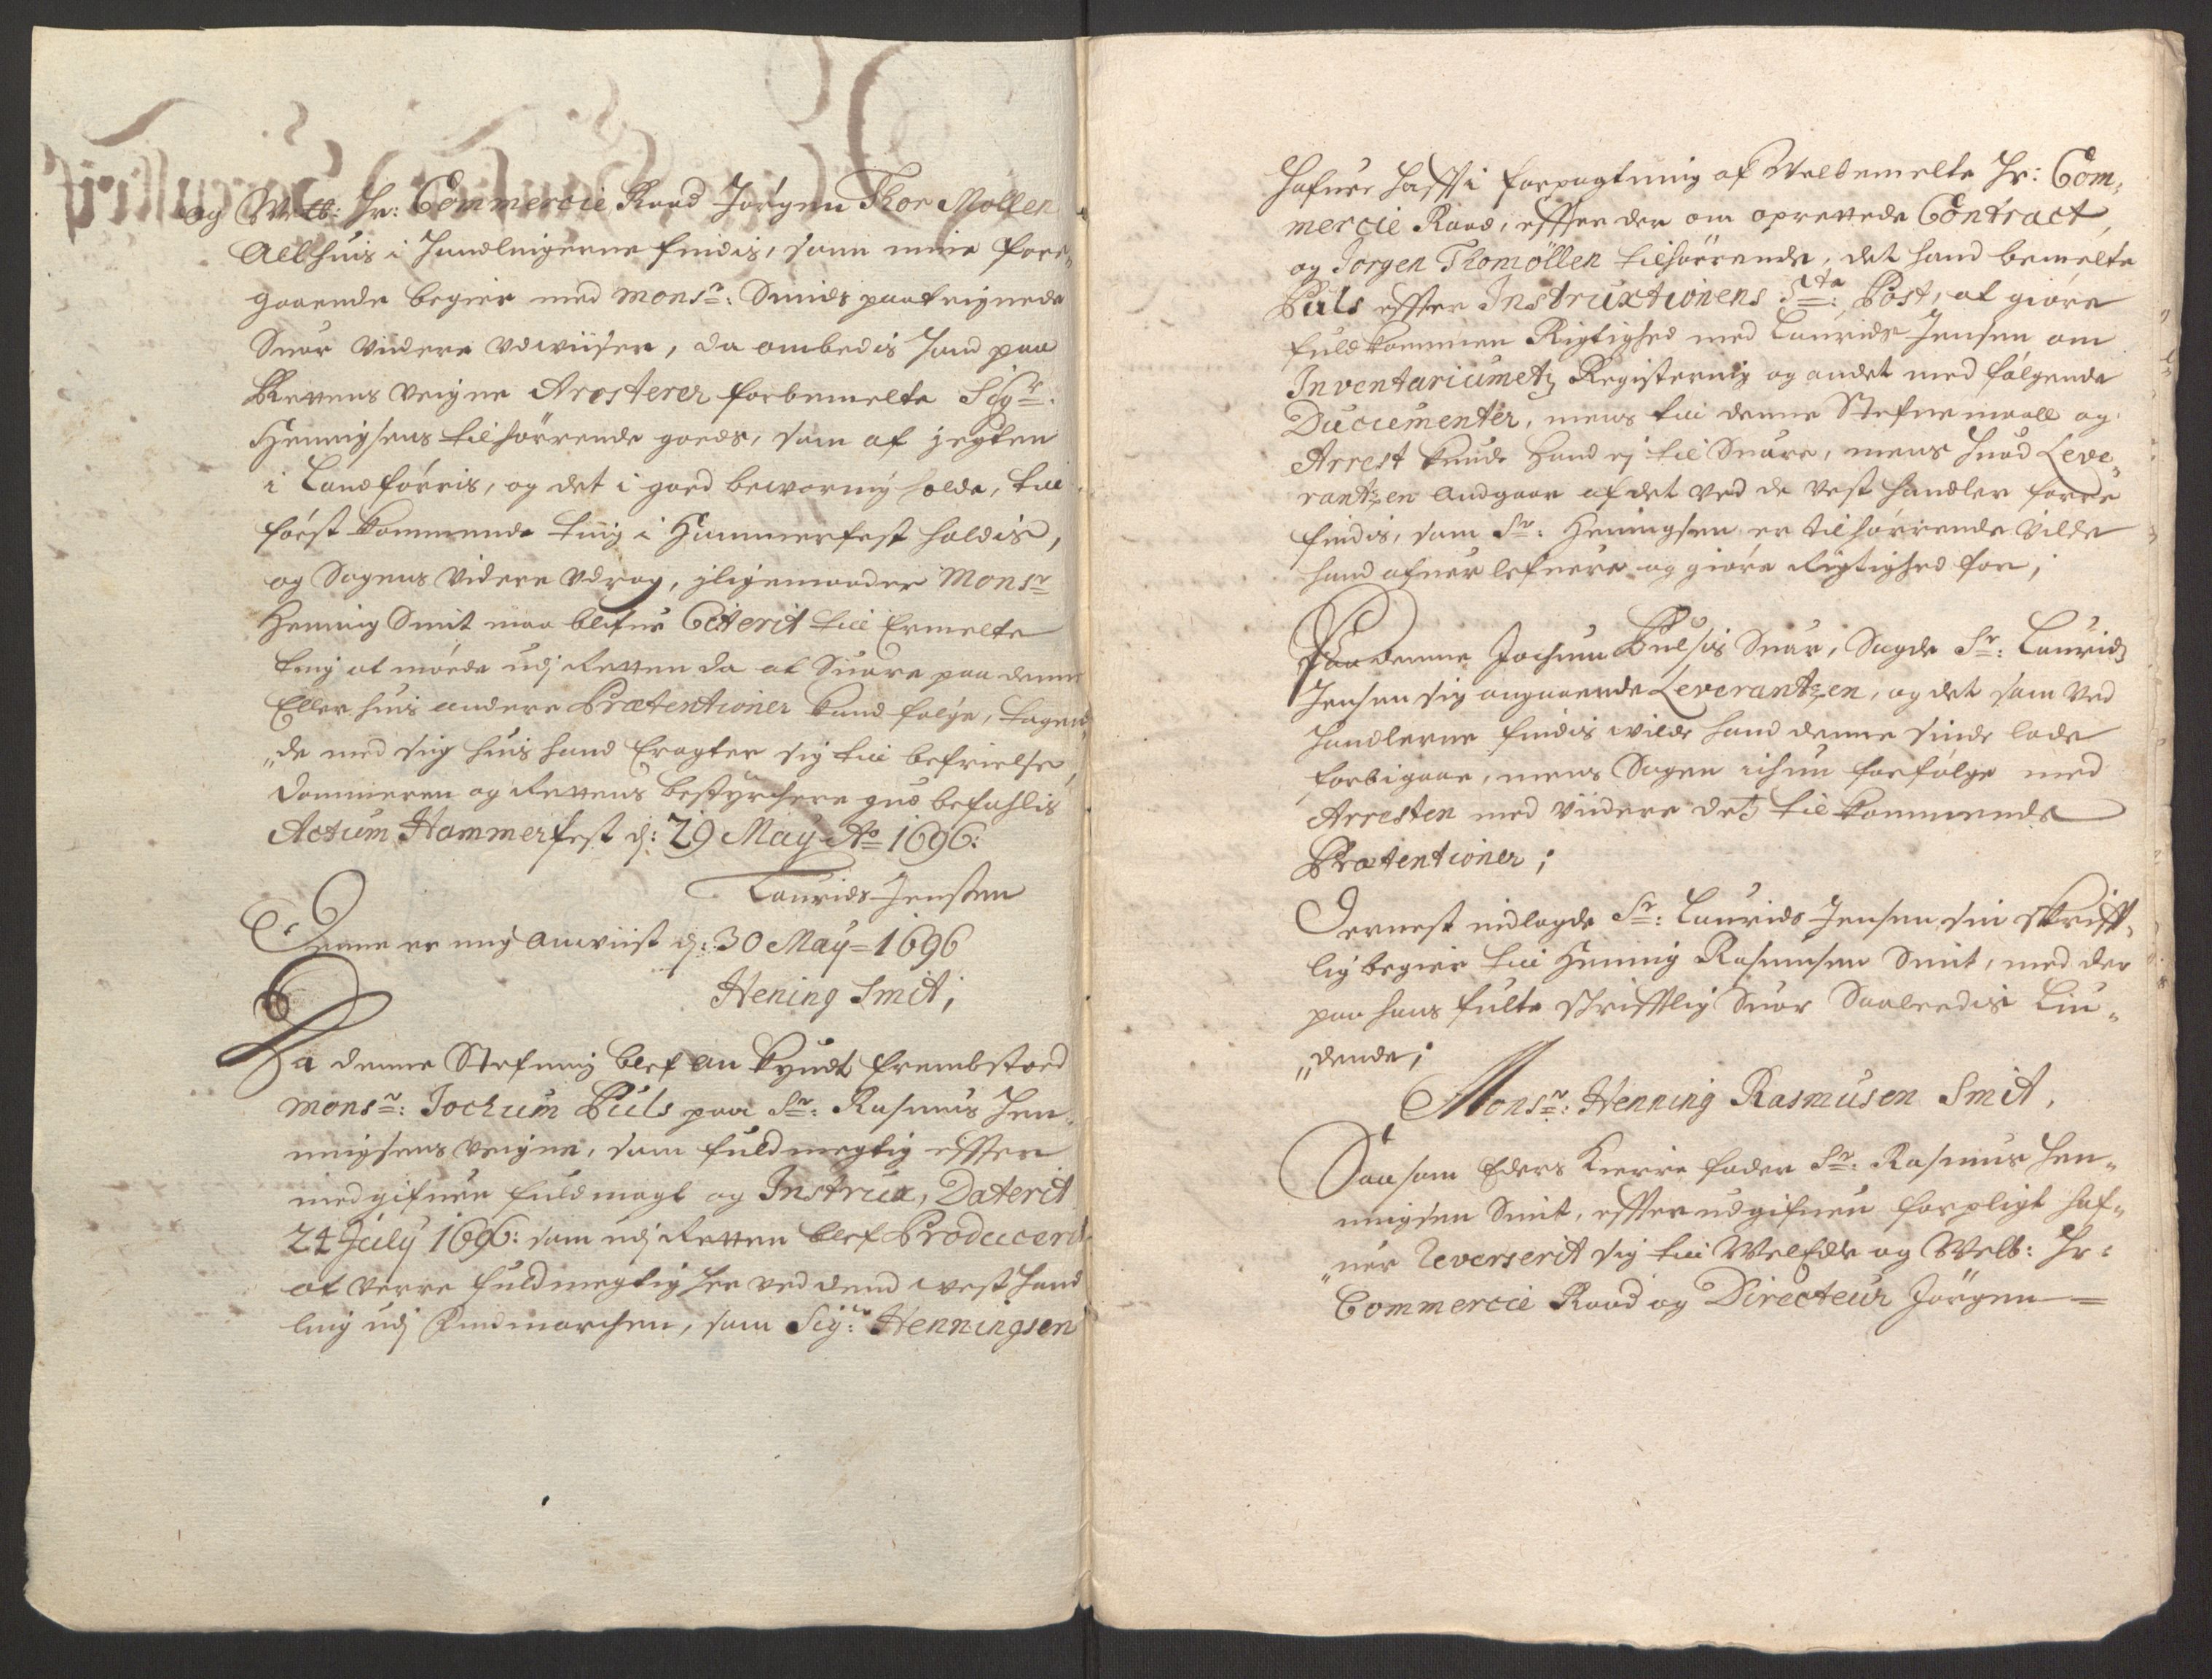 og Welb: Hr: Commercie Raad Jørgen Thor Møllen
Alt huis i Handlingerne findis, som min fore„
gaaende begier med Monsr: Smids paateignede
Suar videre udwiiser, da ombedis Hand paa
Rettens Veigne Arosterer forbemelte Sigr.
Henningsens tilhørrende goeds, som af jegten
i Land føris, og det i goed bewaring holde, till
først kommende ting i Hammerfest holdis,
og Sagens videre udrag, iligemaader Monsr
Henning Smit maa blifue Citerit till Ermelte
ting at møede udj Retten da at Suare paa denne
Eller huis andere Prætentioner kand følge, tagen„
„de med siig huis hand Eragter sig till befrielse,
dommeren og Rettens bestyrchere gud befahlis
Actum Hammerfest d: 29 May Ao 1696:
Laurids Jenssen
Denne er mig anwiist d: 30 May = 1696
Hening Smit;
Da denne Stefning blef an kyndt frembstoed
Monsr: Jochum Puls paa Sr: Rasmus Hen„
ningsens Veigne, som fuldmegtig effter
medgifuen fuldmagt og Instrux, Daterit
24 July 1696: som udj Retten blef Producerit
at verre fuldmegtig her ved dend west Hand
ling udj Findmarchen, som Sigr: Henningsen
Hafuer hafft i forpagtning af Welbemelte Hr: Com„
mercie Raad, effter der om oprettede Contract,
og Jørgen Thomøllen tilhørrende, det hand bemelte
Puls effter Instruxtionens 5ta: Post, at giøre
fuldkommen Rigtighed med Laurids Jensen om
Inventariumetz Registering og andet med følgende
Ducumenter, mens till denne Stefnemaall og
Arrest kunde Hand ej til Suare, mens huad Leve„
rantzen Andgaar af det ved de Vest Handler forre
findis, som Sr: Heningsen er tilhørrende vilde
hand afuer lefuere og giøre Rigtighed for;
Paa denne Jochum Pulsis Suar, Sagde Sr: Laurids
Jensen sig angaaende Leverantzen, og det som ved
Handlerne findis wilde hand denne sinde lade
forbigaae, mens Sagen ichun forfølge med
Arresten med viidere detz tilkommende
Prætentioner;
Dernest indlagde Sr: Laurids Jensen sin Skrifft„
lig begier till Henning Rasmusen Smit, med der
paa hans fulte schrifftlig Suar Saaleedis Liu„
„dende;
Monsr: Henning Rasmusen Smit,
Saasom Eders Kierre fader Sr: Rasmus Hen„
ningsen Smit, effter udgifuen forpligt haf„
„uer Reverserit sig till WelEdle og Welb: Hr:
Commercie Raad og Directeur Jørgen =